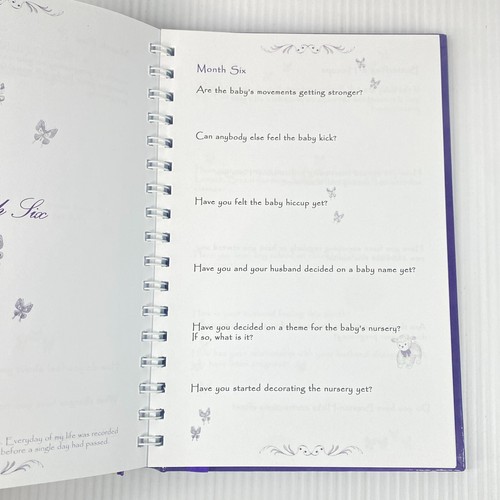 Six
. Everyday of my life was recorded
before a single day had passed.
Month Six
Are the baby's movements getting stronger?
Can anybody else feel the baby kick?
Have you felt the baby hiccup yet?
Have you and your husband decided on a baby name yet?
Have you decided on a theme for the baby's nursery?
If so, what is it?
Have you started decorating the nursery yet?